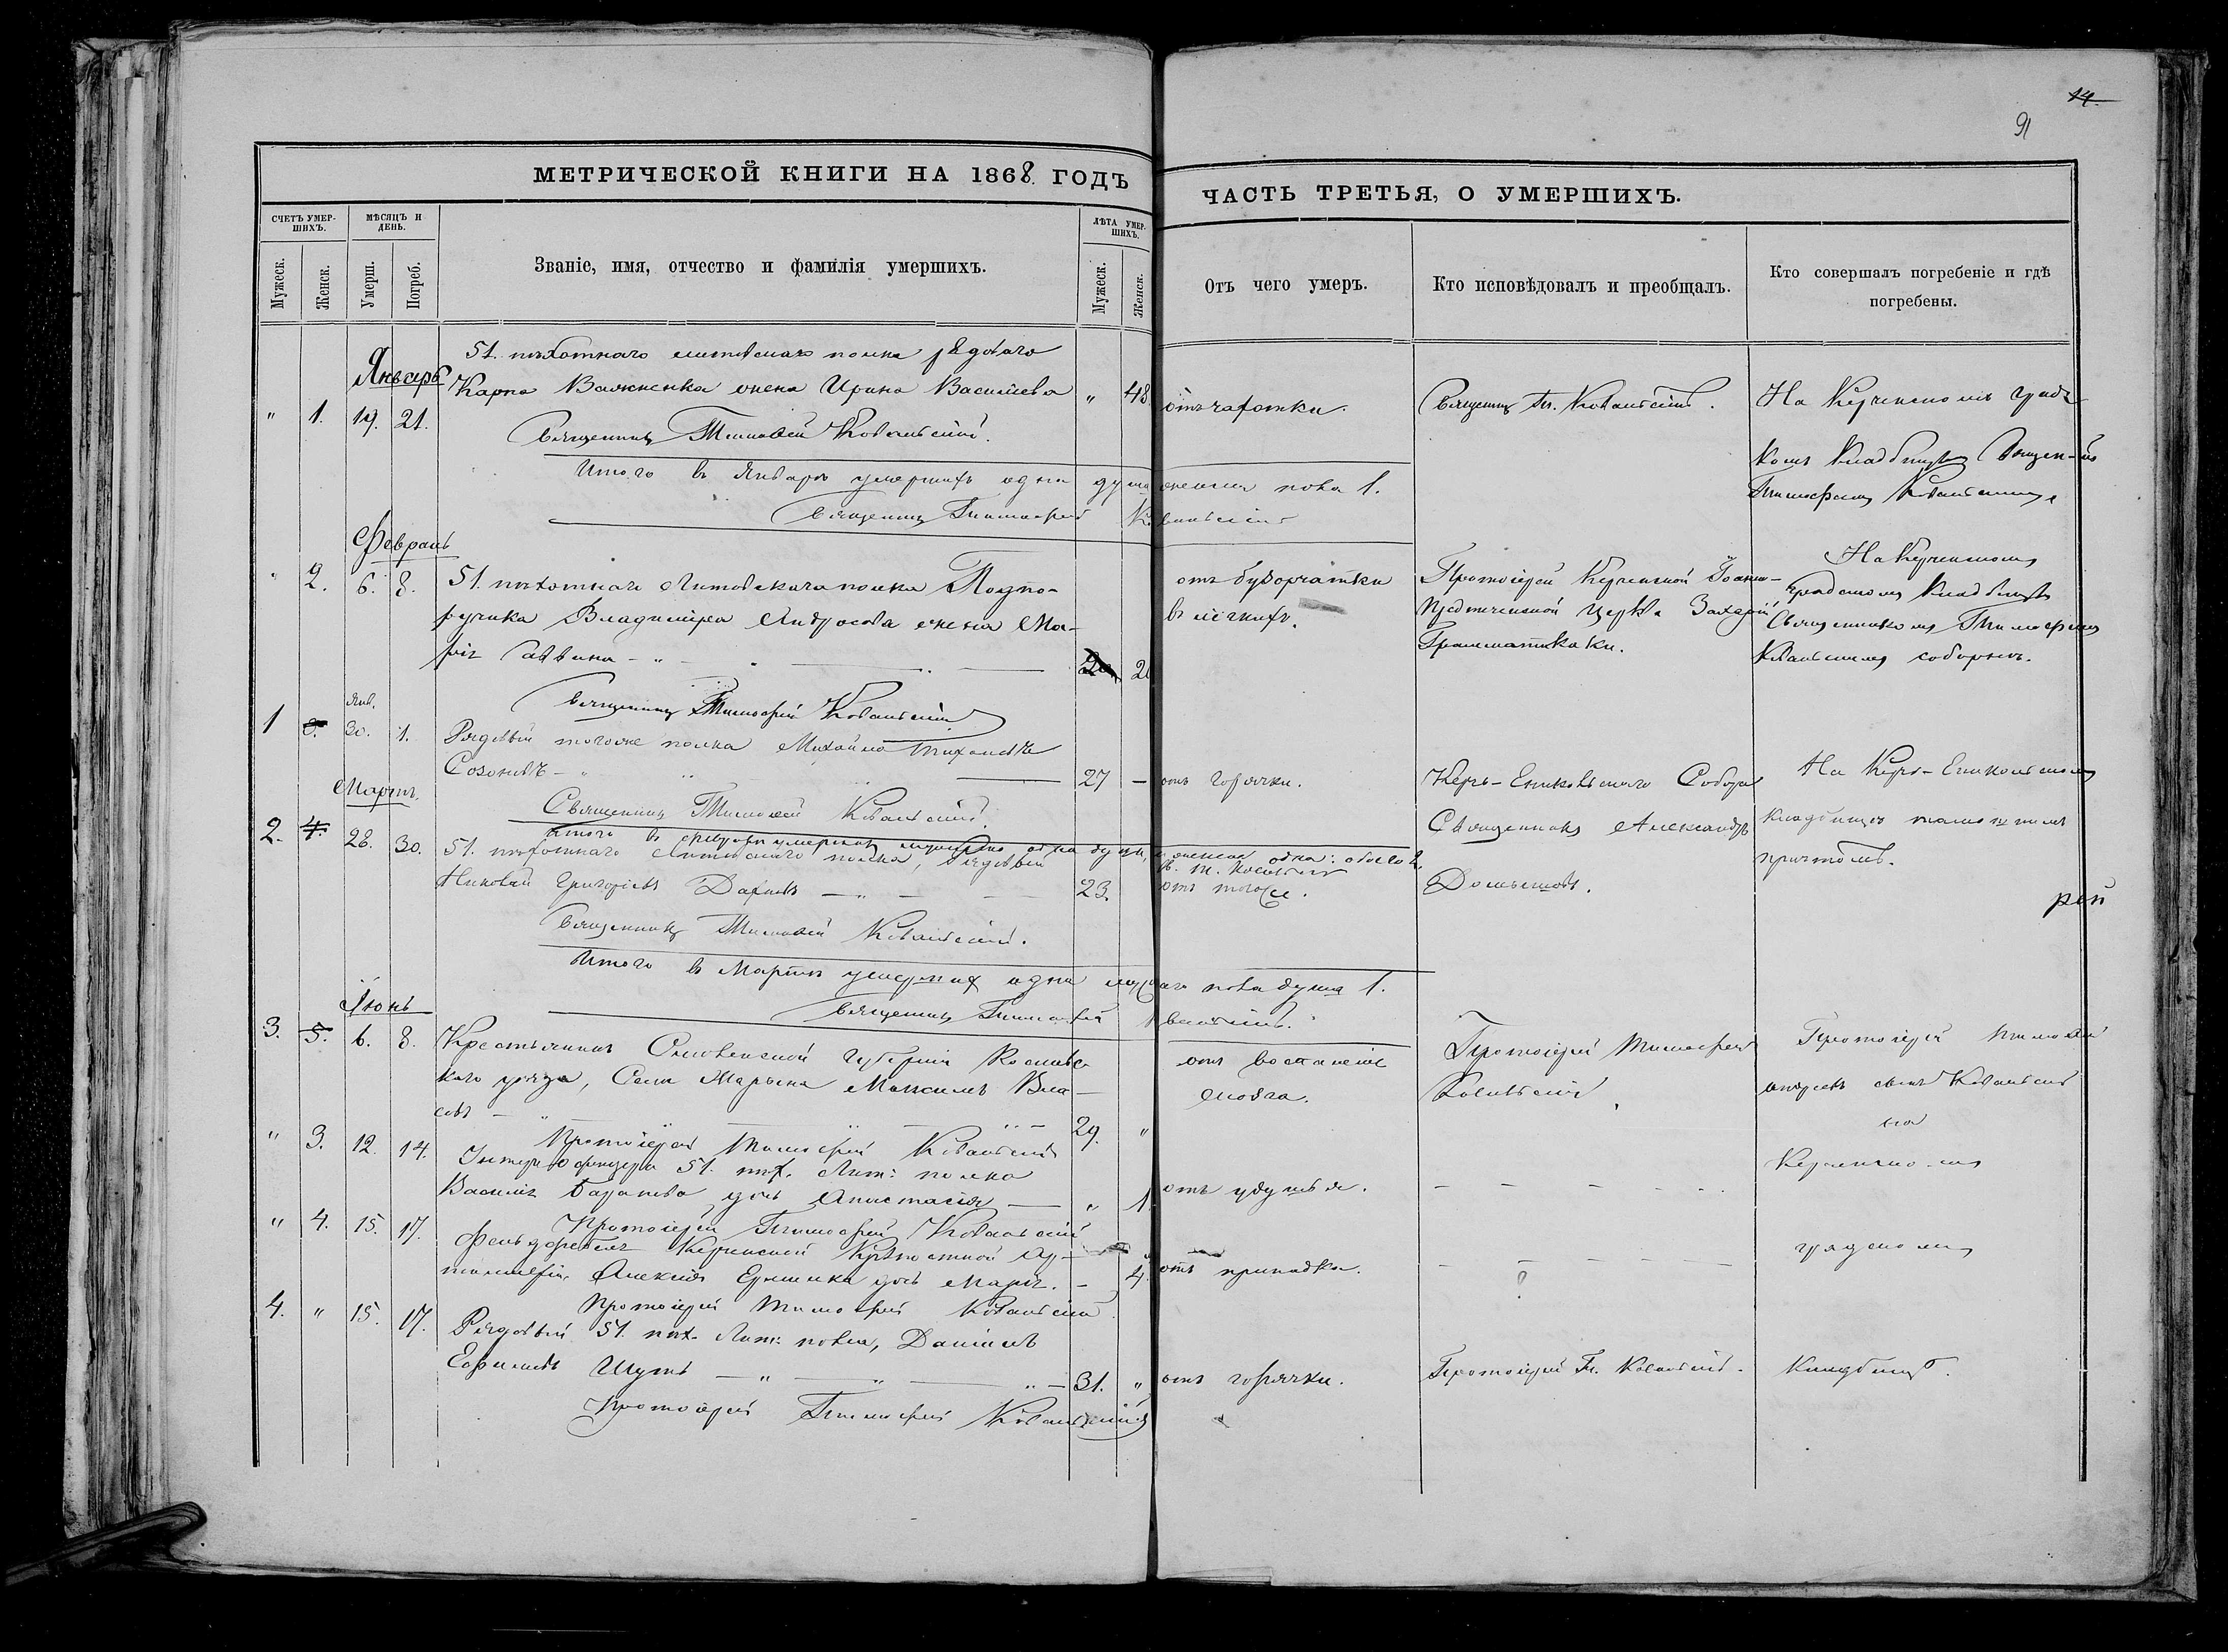 14.
91
МЕТРИЧЕСКОЙ КНИГИ НА 1868. ГОДЪ
ЧАСТЬ ТРЕТЬЯ, О УМЕРШИХЪ.
СЧЕТЪ УМЕР-
ШИХЪ.
МѢСЯЦЪ И
ДЕНЬ.
Званіе, имя, отчество и фамилія умершихъ.
ЛѢТА УМЕР-
ШИХЪ.
Мужеск.
Женск.
Умерш.
Погреб.
Мужеск.
Женск.
Отъ чего умеръ.
Кто исповѣдовалъ и преобщалъ.
Кто совершалъ погребеніе и гдѣ
погребены.
Январь
51. пѣхотнаго литовскаго полка рядоваго
" 1. 19. 21. Карпа Важненка жена Ирина Васильева " 48. отъ чахотки. Священникъ Тим. Ковальскій. На Керченскомъ град
Священникъ Тимофей Ковальскій.
комъ кладбищѣ Священ
Тимофеемъ Ковальскимъ
Итого въ Январѣ умершихъ одна душа женска пола 1.
Священникъ Тимофей Ковальскій
Февраль
" 2. 6. 8. 51. пѣхотнаго Литовскаго полка Подпо-
ручика Владиміра Андросова жена Ма-
рія Саввина 20
отъ бугорчатки
въ легкихъ.
Протоіерей Керченской Іоанно-
Предтеченской церкви Захарій
Грамматикаки.
На Керченскомъ
градскомъ кладбищѣ
Священникомъ Тимофеемъ
Ковальскимъ соборнѣ.
Священникъ Тимофей Ковальскій
Янв.
1 3. 30. 1. Рядовый тогоже полка Михаилъ Тихоновъ
Созоновъ 27 — отъ горячки.
Керчь-Ениковскаго Собора
Священникъ Александръ
На Керчь-Ениколskомъ
кладбищѣ тамошнимъ
причтомъ.
Священникъ Тимофей Ковальскій.
Итого въ февралѣ умершихъ мужеска одна душа, женска одна: обоего 2.
С. Т. Ковальскій
Мартъ.
2. 4. 28. 30. 51. пѣхотнаго Литовскаго полка, Рядовый
Николай Григорьевъ 23. отъ тогоже.
рей
Священникъ Тимофей Ковальскій.
Итого въ Мартѣ умершихъ одна мужеска пола душа 1.
Священникъ Тимофей Ковальскій.
Іюнь
3. 5. 6. 8. Крестьянинъ Смоленской Губерніи
каго уѣзда, Села Марьина Максимъ Вла-
совъ 29. "
отъ воспаленія
мозга.
Протоіерей Тимофей
Ковальскій
Протоіерей Тимофей
Ковальскій
на
Протоіерей Тимофей Ковальскій
" 3. 12. 14. Унтеръ Офицера 51. пѣх. Лит: полка
Василія Баранова дочь Анастасія " 1. отъ удушья.
Керченскомъ
Протоіерей Тимофей Ковальскій
" 4. 15. 17. Фельдфебеля Керченской Крѣпостной Ар-
тиллеріи, Алексія дочь Марія. 4. отъ припадка.
градскомъ
Протоіерей Тимофей Ковальскій
4. " 15. 17. Рядовый 51. пѣх. Лит: полка, Даніилъ
Ефимовъ Шутъ 31. " отъ горячки. Протоіерей Т. Ковальскій. кладбищѣ.
Протоіерей Тимофей Ковальскій